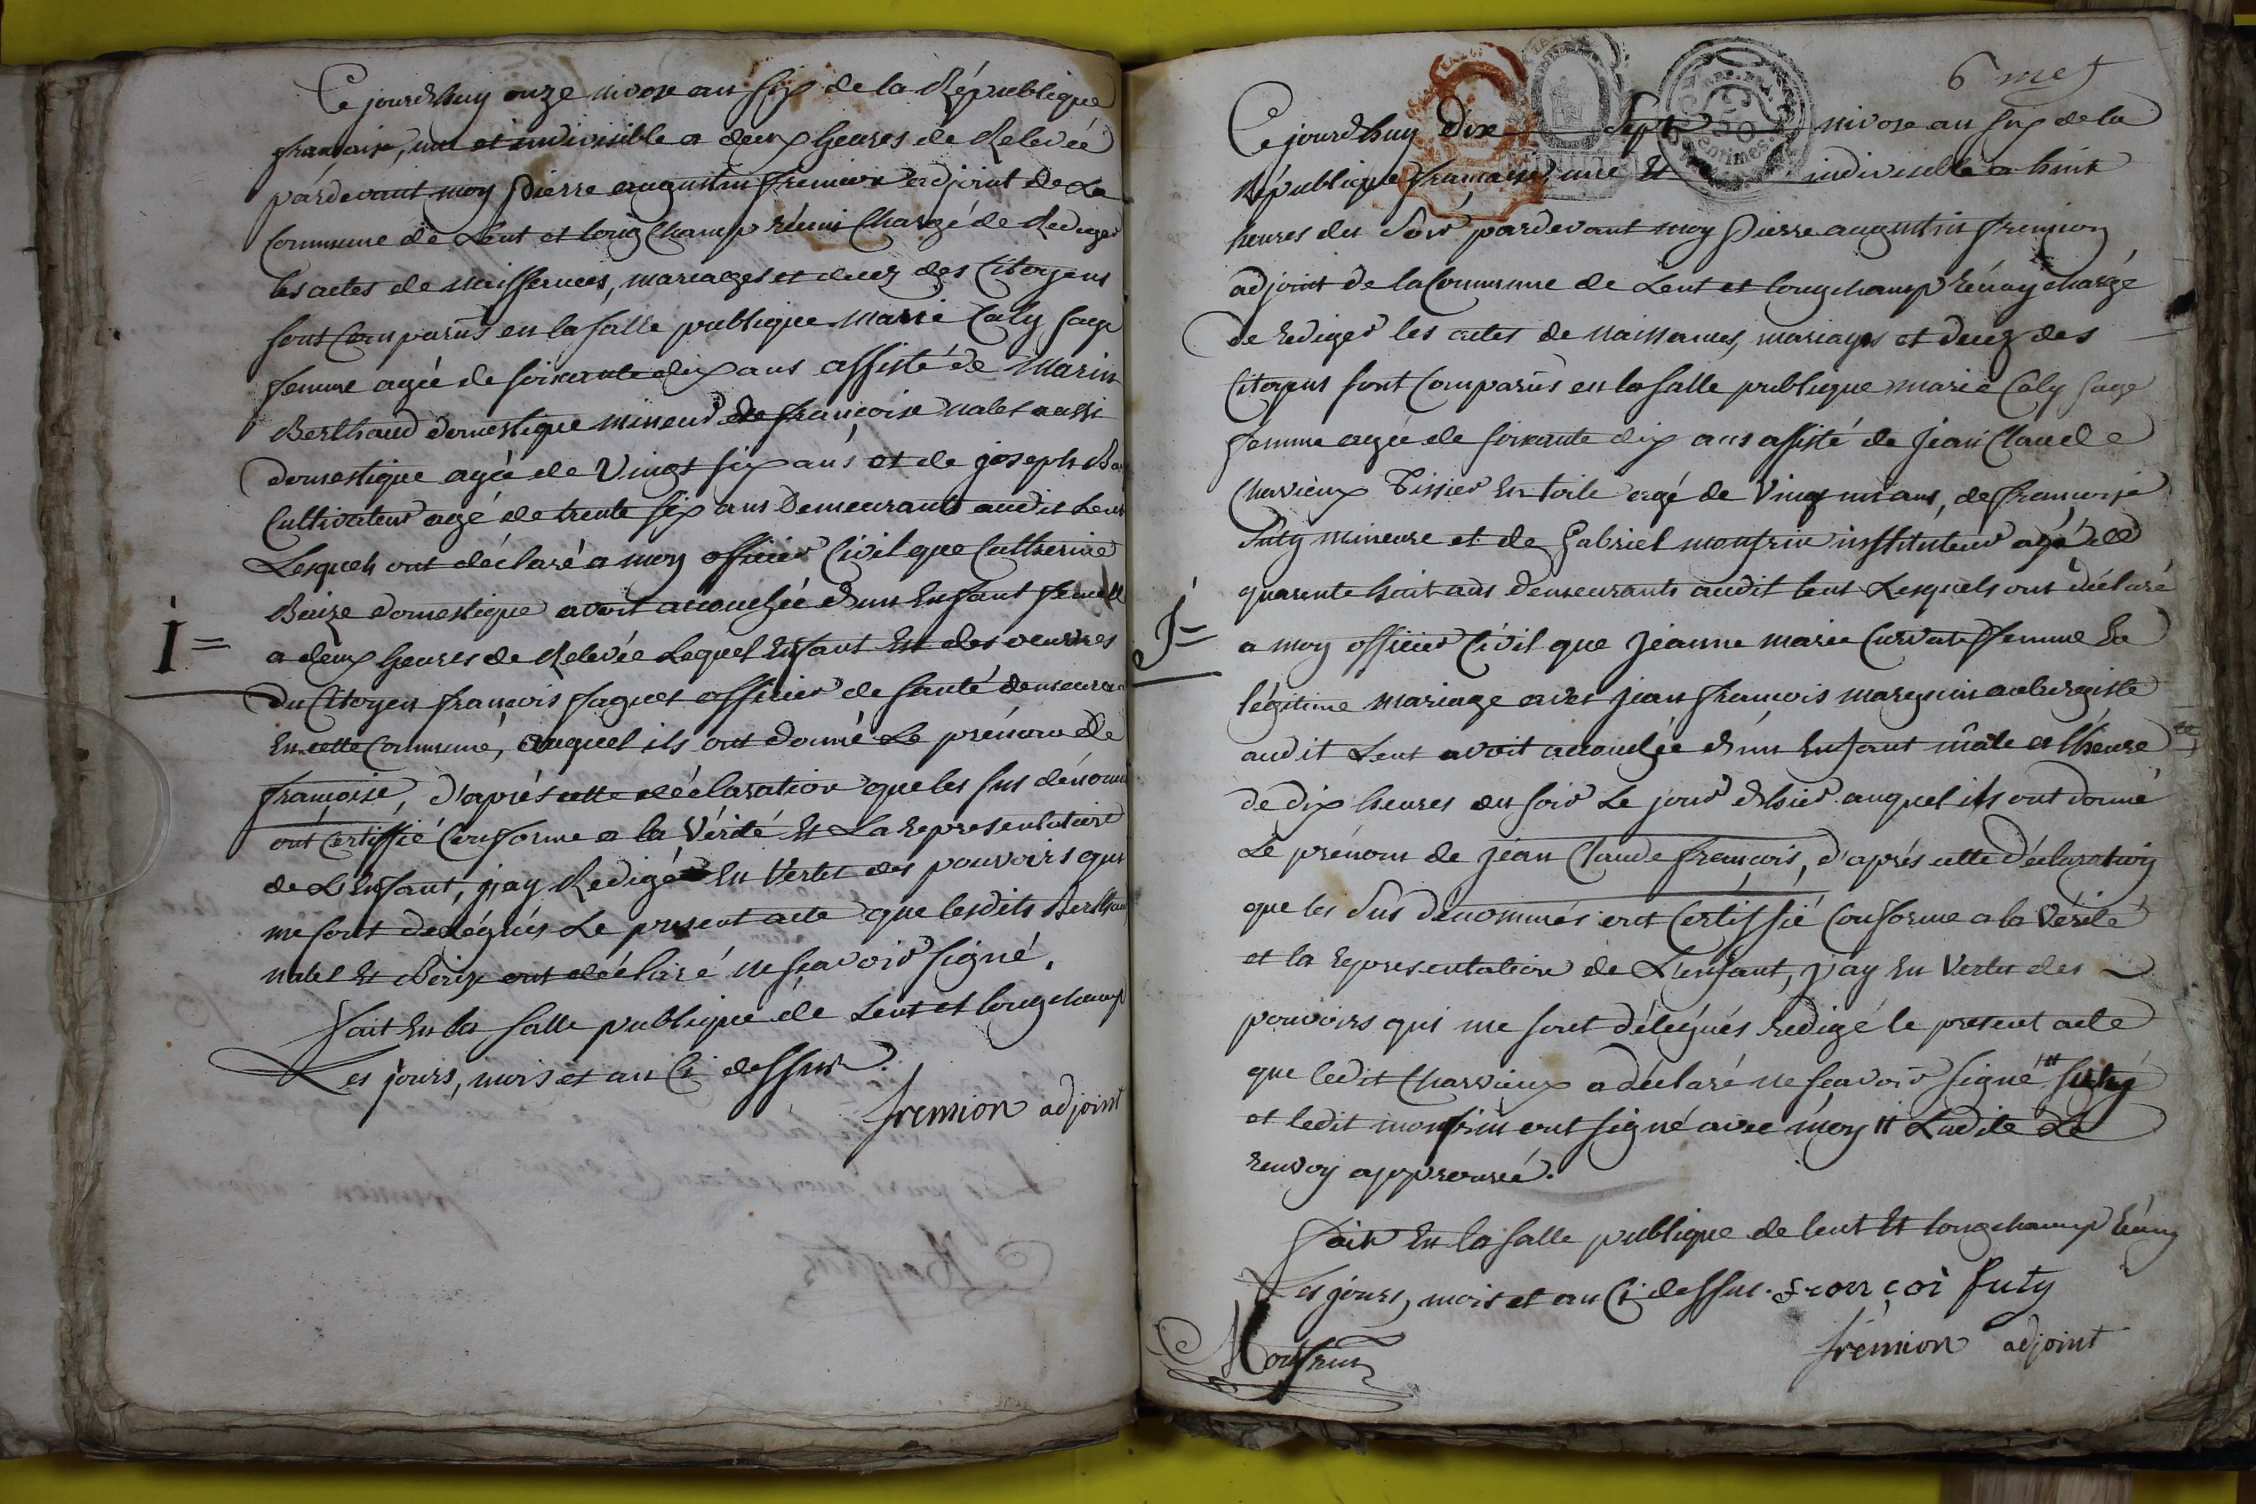 Ce jourdhuy onze nivose an six de la République
francoise, une et indivisible a deux heures de Relevée
pardevant moy Pierre augustin fremion adjoint de La
Commune de Lent et longchamp réuni Chargé de Rediger
les actes de naissences, mariages et decez des Citoyens
sont Comparus en la salle publique Marie Caly sage
femme agée de soixante dix ans assisté de Marin
Berthaud domestique mineur de françoise nalet aussi
domestique agée de Vingt six ans et de joseph
Cultivateur agé de trente six ans Demeurant audit Lent
Lesquels ont déclaré a moy officier Civil que Catherine
Beize domestique avoit accouchée d'un Enfant femelle
I=
a deux heures de Relevée Lequel Enfant Est des oeuvres
du Citoyen francois faguet officier de santé demeurant
En cette Commune, auquel ils ont donné Le prénom de
françoise, d'aprés cette déclaration que les sus dénommés
ont Certiffié Conforme a la Vérité Et La representation
de L'Enfant, j'ay Redigé En Vertu des pouvoirs qui
me sont delégués Le present acte que lesdits Berthaud
nalet Et ont déclaré ne scavoir signé.
fait En la salle publique de Lent et longchamp
Les jours, mois et an Ci dessus.
fremion adjoint
6 me
Ce jourdhuy dix Sept nivose an six de la
République francoise une Et indivisible a huit
heures du Soir pardevant moy Pierre augustin fremion
adjoint de la Commune de Lent et longchamp réuny chargé
de rediger les actes de naissances, mariages et decez des
Citoyens sont Comparus en la salle publique marie Caly sage
femme agée de soixante dix ans assisté de Jean Claude
Charvieux Tissier En toile agé de Vingt un ans, de françoise
futy mineure et de Gabriel monfrin instituteur agé de
quarente huit ans demeurants audit lent Lesquels ont déclaré
I=
a moy officier Civil que Jeanne marie Curvat femme En
légitime mariage avec jean françois marguin aubergiste
audit Lent avoit accouchée d'un Enfant mâle a l'heure
de dix heures du soir Le jour d'hier auquel ils ont donné
Le prénom de jean Claude françois, d'aprés cette déclaration
que les Sus denommés ont Certiffié Conforme a la Vérité
et la representation de L'enfant, j'ay En Vertu des
pouvoirs qui me sont délegués redigé le present acte
que ledit Charvieux a déclaré ne scavoir signé futy
et ledit monfrin ont signé avec moy Ladite Le
renvoy approuvé.
fait En la salle publique de lent Et longchamp réuny
Les jours, mois et an Ci dessus. françoi futy
Monfrin
frémion adjoint